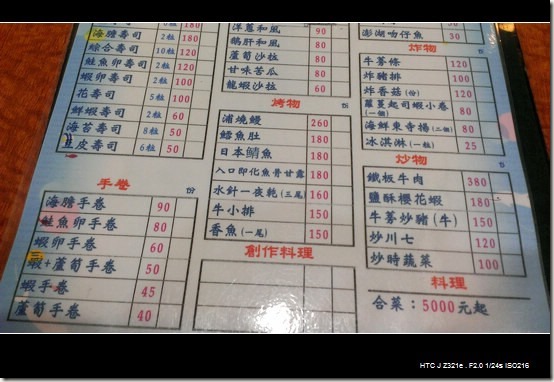 6粒 180
海膽壽司 2粒 180
綜合壽司 10粒 120
鮭魚卵壽司 2粒 120
蝦卵壽司 2粒 100
花壽司 5粒 100
鮮蝦壽司 2粒 60
海苔壽司 8粒 50
豆皮壽司 6粒 50
手卷 份
海膽手卷 90
鮭魚卵手卷 80
蝦卵手卷 60
蝦+蘆筍手卷 50
蝦手卷 45
蘆筍手卷 40
洋蔥和風 90
鵝肝和風 80
蘆筍沙拉 80
甘味苦瓜 80
龍蝦沙拉 60
烤物 份
浦燒鰻 260
鱈魚肚 180
日本鯖魚 180
入口即化魚骨甘露 180
水針一夜乾(三尾) 160
牛小排 150
香魚(一尾) 150
創作料理
澎湖吻仔魚 30
炸物 份
牛蒡條 120
炸豬排 100
炸香菇(份) 120
蘿蔓起司蝦小卷
(一個) 80
海鮮東寺揚(二個) 80
冰淇淋(一粒) 25
炒物 份
鐵板牛肉 380
鹽酥櫻花蝦 180
牛蒡炒豬(牛) 150
炒川七 120
炒時蔬菜 100
料理
合菜：5000元起
HTC J Z321e . F2.0 1/24s ISO216